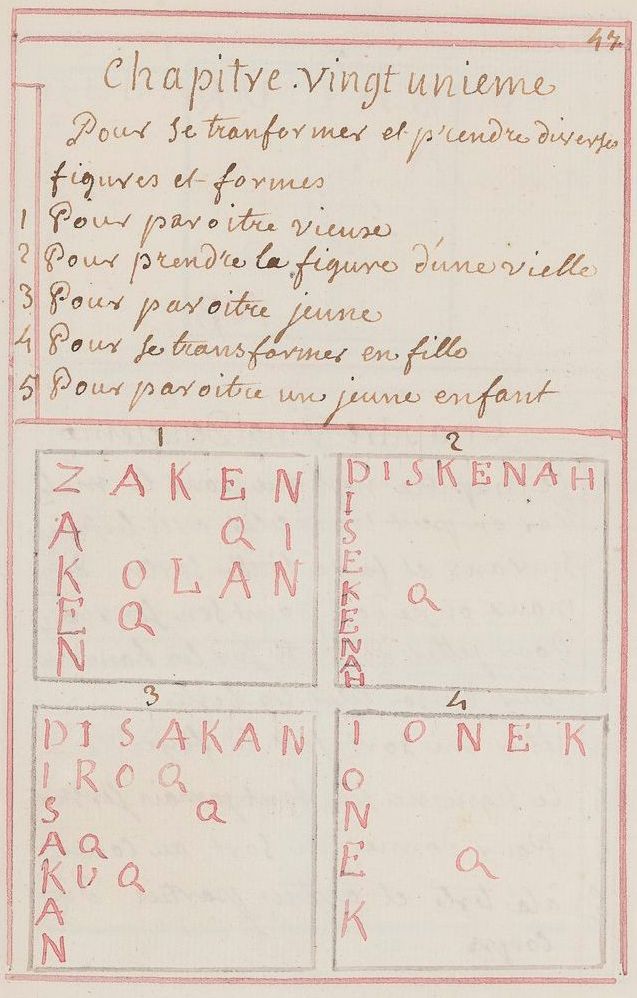 47
Chapitre. vingt unieme
Pour se tranformer et prendre diverse
figures et formes
1 Pour paroitre vieuse
2 Pour prendre la figure d'une vielle
3 Pour paroitre jeune
4 Pour se transformer en fille
5 Pour paroitre un jeune enfant
1
ZAKEN
A Q I
K OLAN
E Q
N
2
DISKENAH
I
S
E
K Q
E
N
A
H
3
DISAKAN
IROQ
S Q
A Q
KUQ
A
N
4
IONEK
O
N
E Q
K